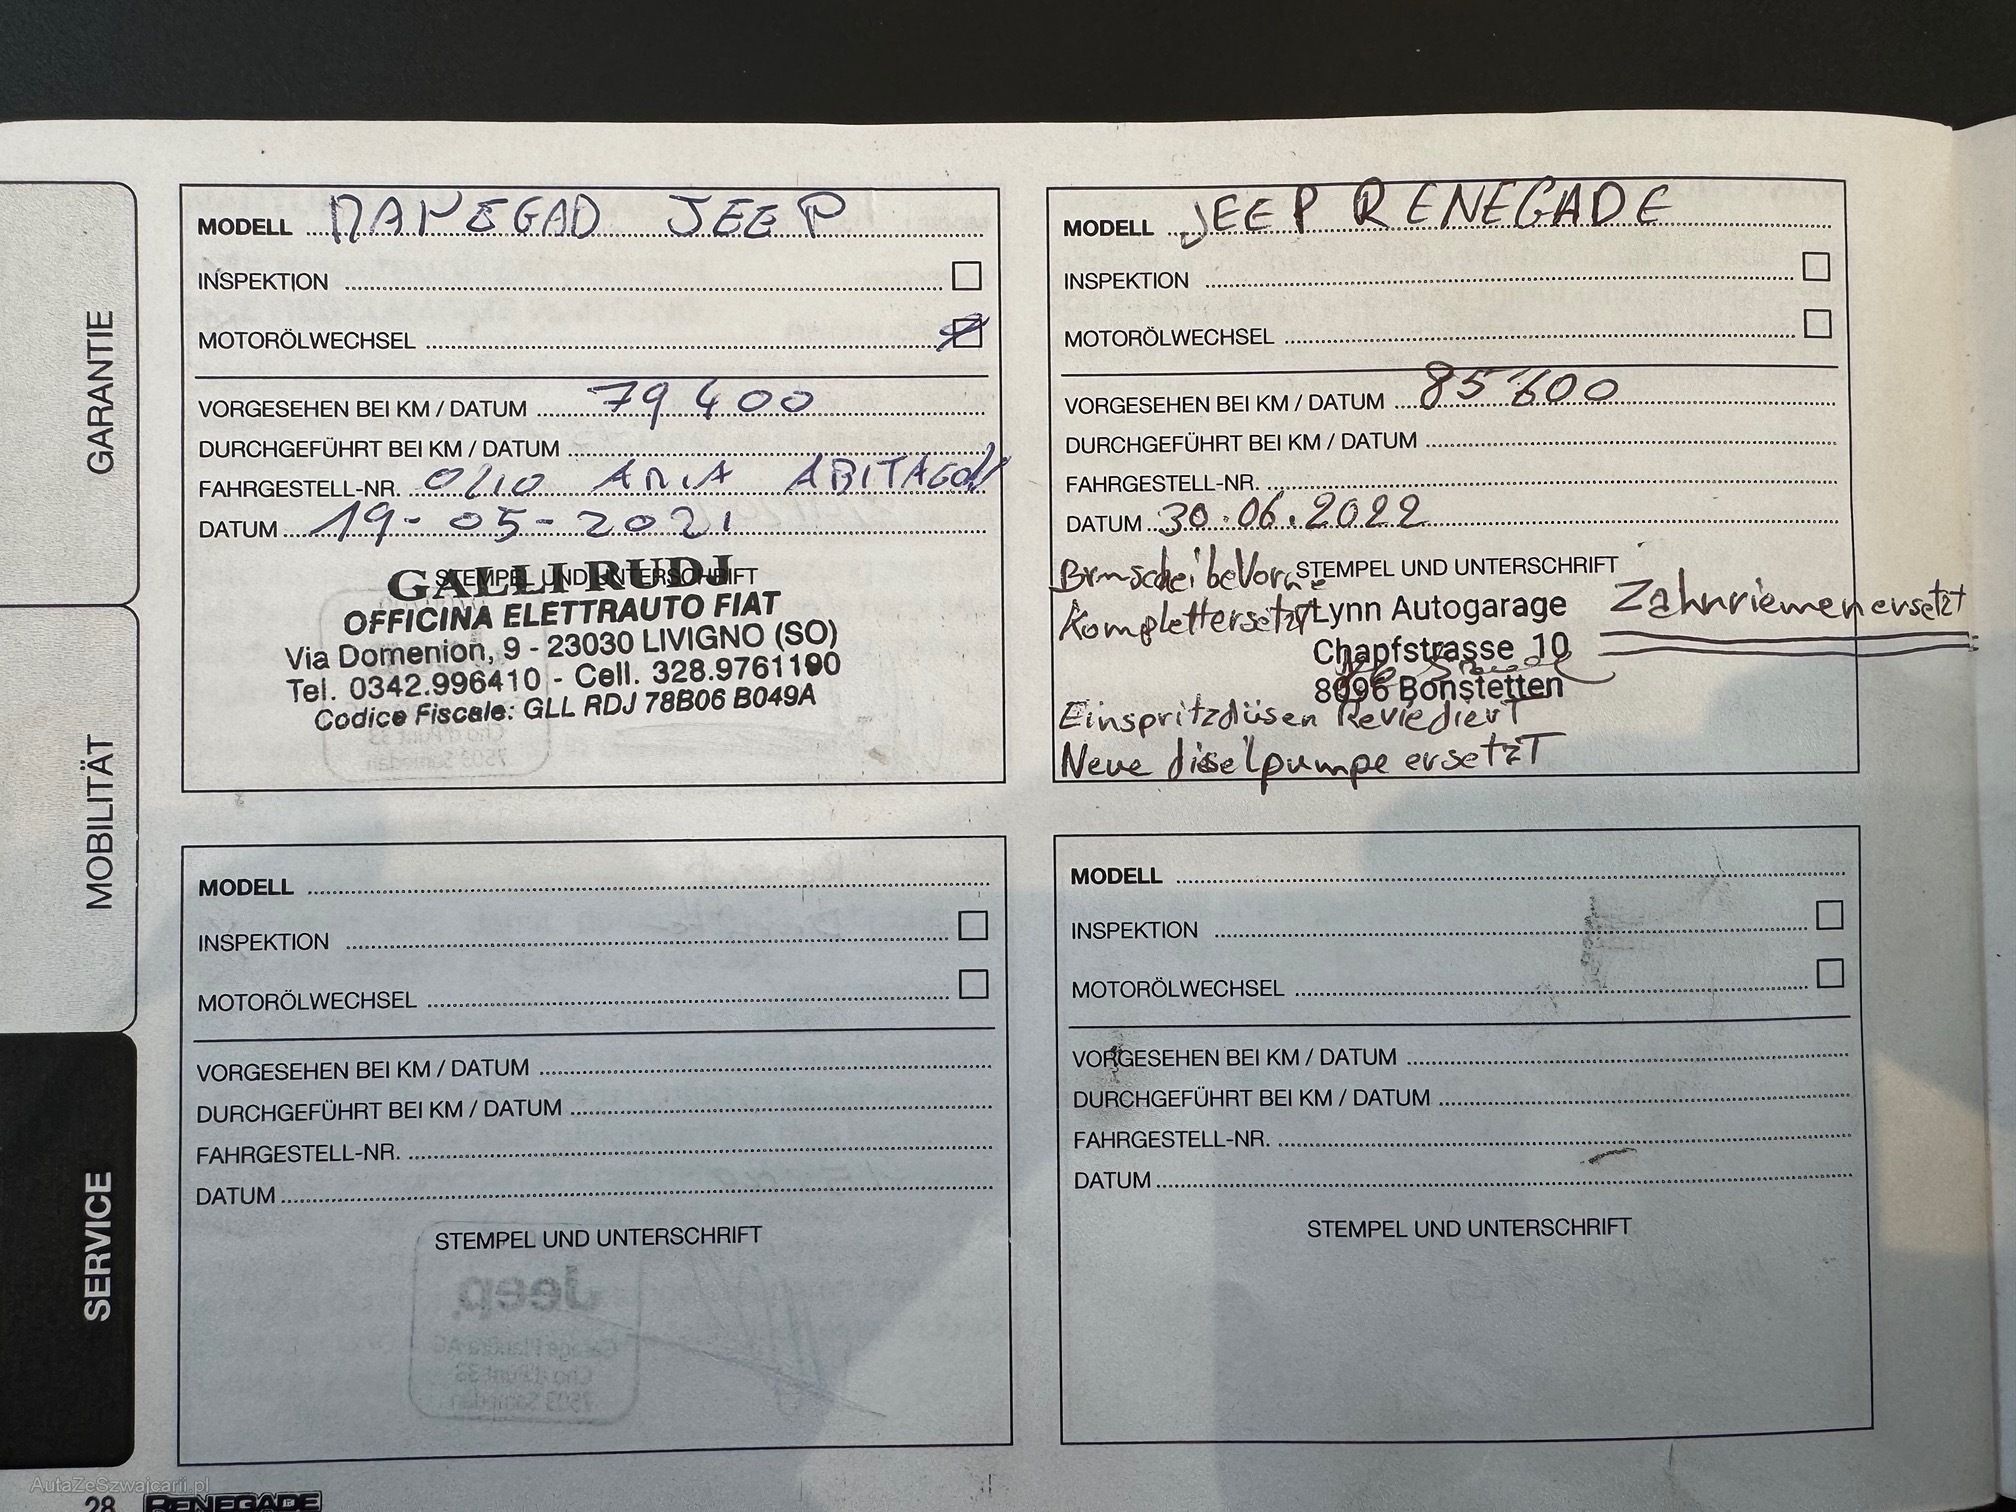 GARANTIE
MOBILITÄT
SERVICE
MODELL JEEP
INSPEKTION
MOTORÖLWECHSEL
VORGESEHEN BEI KM / DATUM 79400
DURCHGEFÜHRT BEI KM / DATUM
FAHRGESTELL-NR. OLIO ARIA ABITACOLO
DATUM 19-05-2021
STEMPEL UND UNTERSCHRIFT
GALLI RUDJ
OFFICINA ELETTRAUTO FIAT
Via Domenion, 9 - 23030 LIVIGNO (SO)
Tel. 0342.996410 - Cell. 328.9761190
Codice Fiscale: GLL RDJ 78B06 B049A
MODELL JEEP RENEGADE
INSPEKTION
MOTORÖLWECHSEL
VORGESEHEN BEI KM / DATUM 85'600
DURCHGEFÜHRT BEI KM / DATUM
FAHRGESTELL-NR.
DATUM 30.06.2022
STEMPEL UND UNTERSCHRIFT
Bremscheibe Vorne
Komplett ersetzt
Lynn Autogarage
Chapfstrasse 10
8096 Bonstetten
Zahnriemen ersetzt
Einspritzdüsen Reviediert
Neue dieselpumpe ersetzt
MODELL
INSPEKTION
MOTORÖLWECHSEL
VORGESEHEN BEI KM / DATUM
DURCHGEFÜHRT BEI KM / DATUM
FAHRGESTELL-NR.
DATUM
STEMPEL UND UNTERSCHRIFT
Jeep
MODELL
INSPEKTION
MOTORÖLWECHSEL
VORGESEHEN BEI KM / DATUM
DURCHGEFÜHRT BEI KM / DATUM
FAHRGESTELL-NR.
DATUM
STEMPEL UND UNTERSCHRIFT
AutaZeSzwajcarii.pl
28 RENEGADE